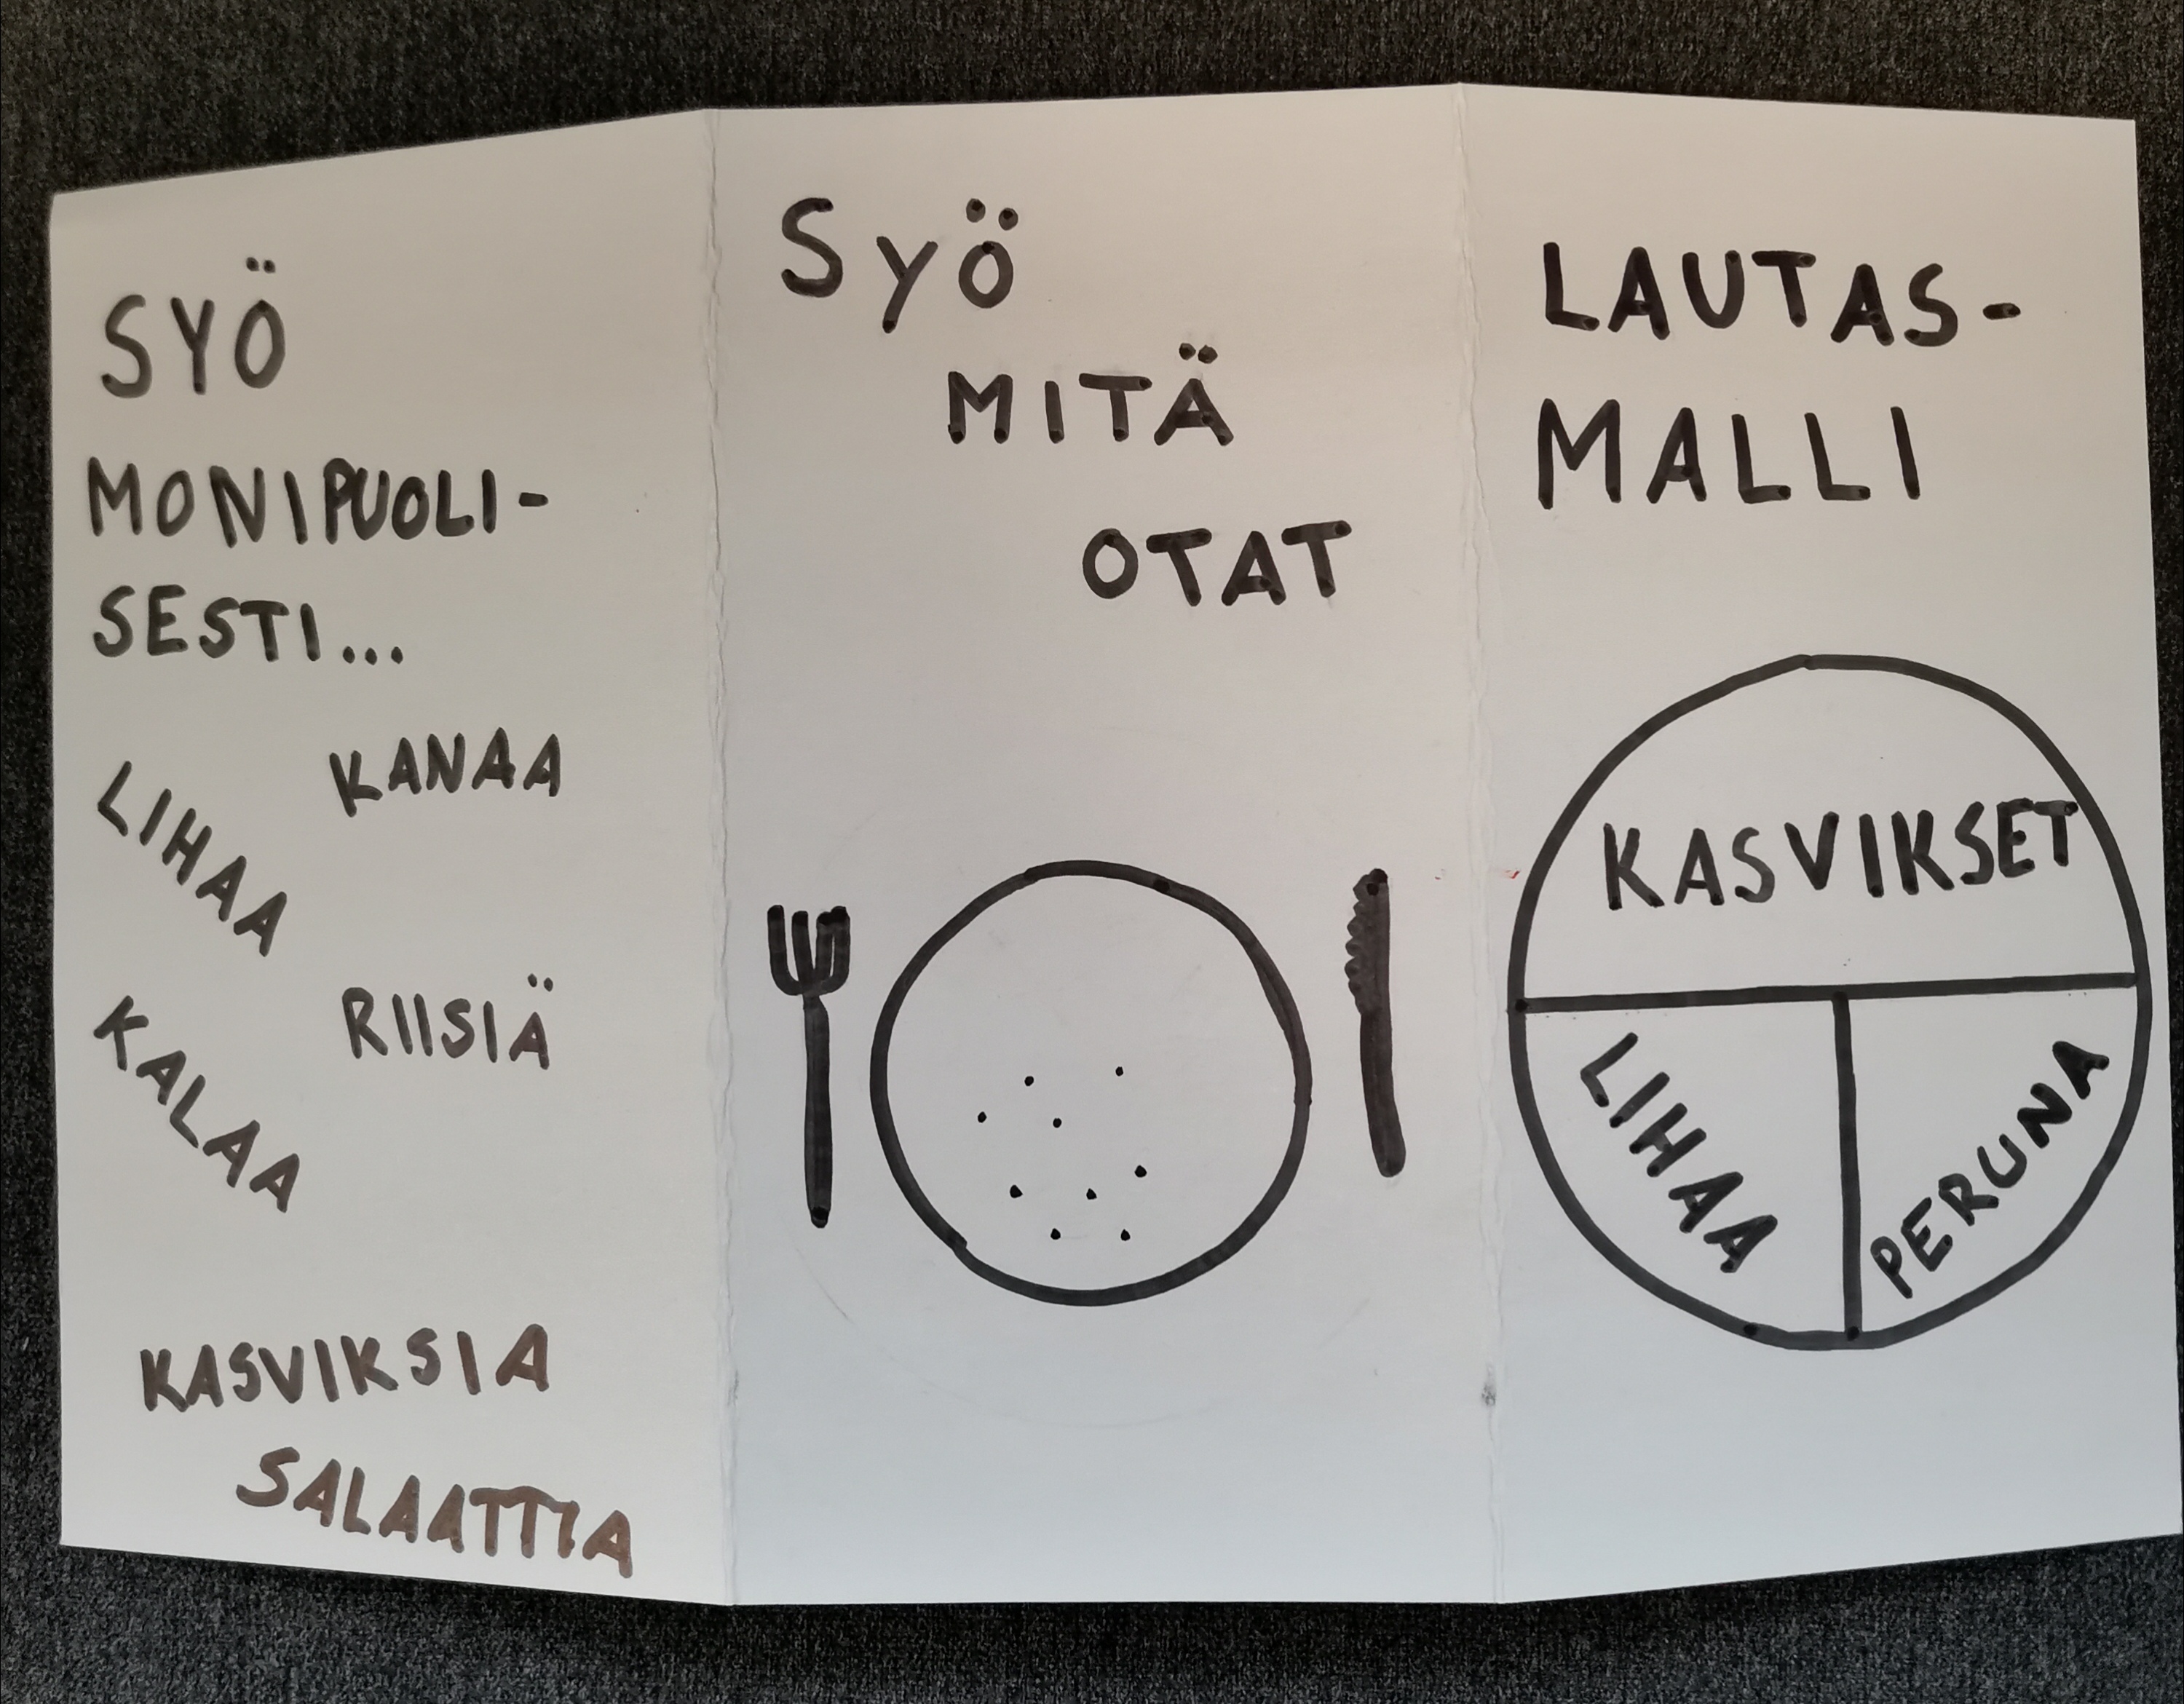 SYÖ
MONIPUOLI-
SESTI...
LIHAA
KANAA
KALAA
RIISIÄ
KASVIKSIA
SALAATTIA
SYÖ
MITÄ
OTAT
LAUTAS-
MALLI
KASVIKSET
LIHAA
PERUNA